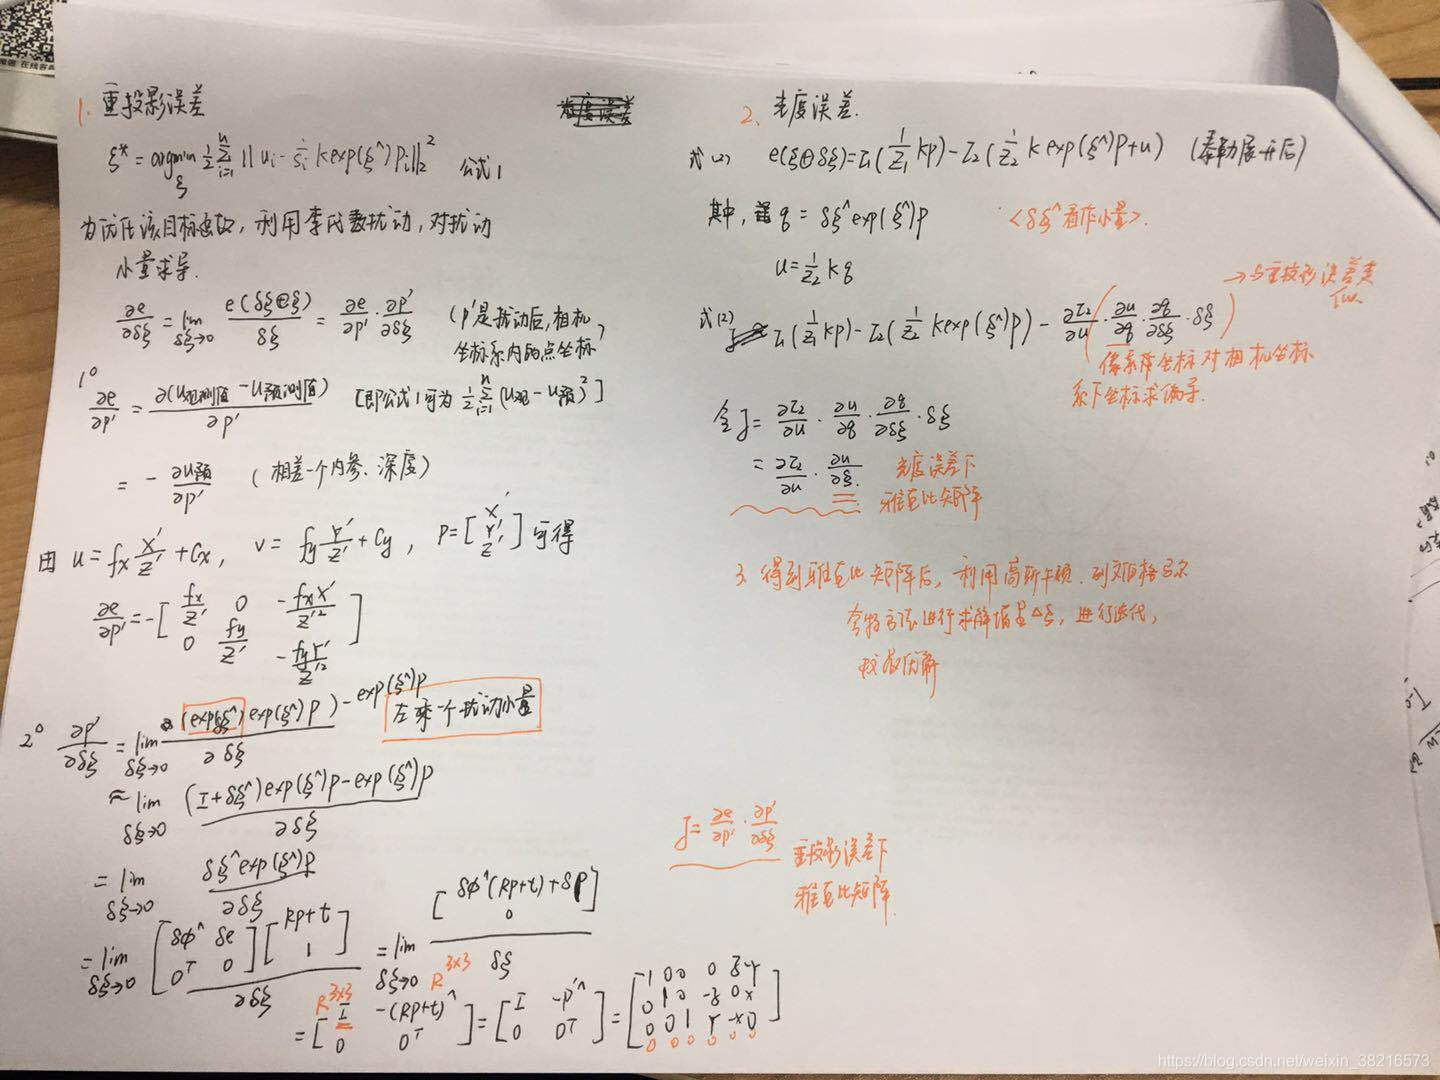 1. 重投影误差
ξ* = argmin_ξ 1/2 Σ_{i=1}^{n} ||u_i - 1/s_i k exp(ξ^) p_i||_2^2 公式1
为优化该目标函数, 利用李代数扰动, 对扰动
小量求导.
∂e/∂δξ = lim_{δξ→0} e(δξ⊕ξ)/δξ = ∂e/∂p' · ∂p'/∂δξ (p'是扰动后, 相机
坐标系内的点坐标)
1° ∂e/∂p' = ∂(u观测值 - u预测值)/∂p' [即公式1可为 1/2 Σ_{i=1}^{n} (u观 - u预)^2]
= - ∂u预/∂p' (相差一个内参、深度)
由 u = fx X'/Z' + Cx, v = fy Y'/Z' + Cy, P = [X' Y' Z'] 可得
∂e/∂p' = -[fx/Z' 0 -fxX'/Z'^2
0 fy/Z' -fyY'/Z'^2]
2° ∂p'/∂δξ = lim_{δξ→0} (exp(δξ^) exp(ξ^) p) - exp(ξ^)p / ∂δξ 左乘一个扰动小量
≈ lim_{δξ→0} (I+δξ^)exp(ξ^)p - exp(ξ^)p / ∂δξ
= lim_{δξ→0} δξ^ exp(ξ^)p / ∂δξ
= lim_{δξ→0} [δΦ^ δe; 0^T 0][Rp+t; 1] / ∂δξ = lim_{δξ→0} [δΦ^(Rp+t)+δρ; 0] / δξ
R^{3×3} R^{3×3}
= [I -(Rp+t)^; 0 0^T] = [I -p'^; 0 0^T] = [1 0 0 0 z -y
0 1 0 -z 0 x
0 0 1 y -x 0
0 0 0 0 0 0]
光度误差
2、光度误差.
式(2) e(ξ⊕δξ) = I_1(1/Z_1 kp) - I_2(1/Z_2 k exp(ξ^)p + u) (泰勒展开后)
其中, q = δξ^ exp(ξ^)p <δξ^看作小量>.
u = 1/Z_2 k q
→ 与重投影误差类
似
式(2) I_1(1/Z_1 kp) - I_2(1/Z_2 k exp(ξ^)p) - ∂I_2/∂u (· ∂u/∂q · ∂q/∂δξ · δξ)
像素坐标对相机坐标
系下坐标求偏导.
令J = ∂I_2/∂u · ∂u/∂q · ∂q/∂δξ · δξ
= ∂I_2/∂u · ∂u/∂ξ. 光度误差下
雅克比矩阵
3. 得到雅克比矩阵后, 利用高斯牛顿. 列文伯格马尔
夸特方法进行求解增量Δξ, 进行迭代,
J = ∂e/∂p' · ∂p'/∂δξ 重投影误差下
雅克比矩阵.
https://blog.csdn.net/weixin_38216573